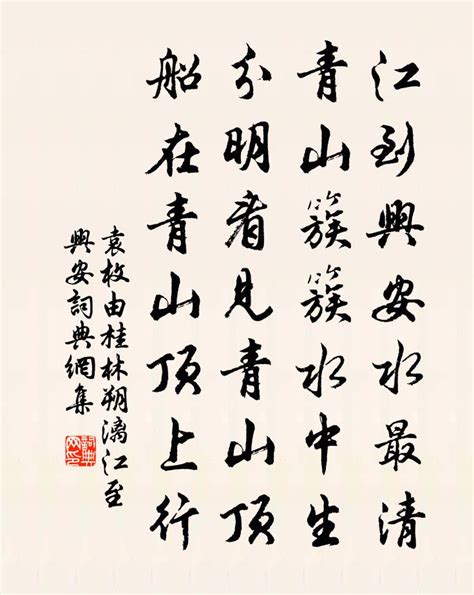 江到興安水最清
青山簇簇水中生
分明看見青山頂
船在青山頂上行
袁枚由桂林朔漓江至
興安詞典網集